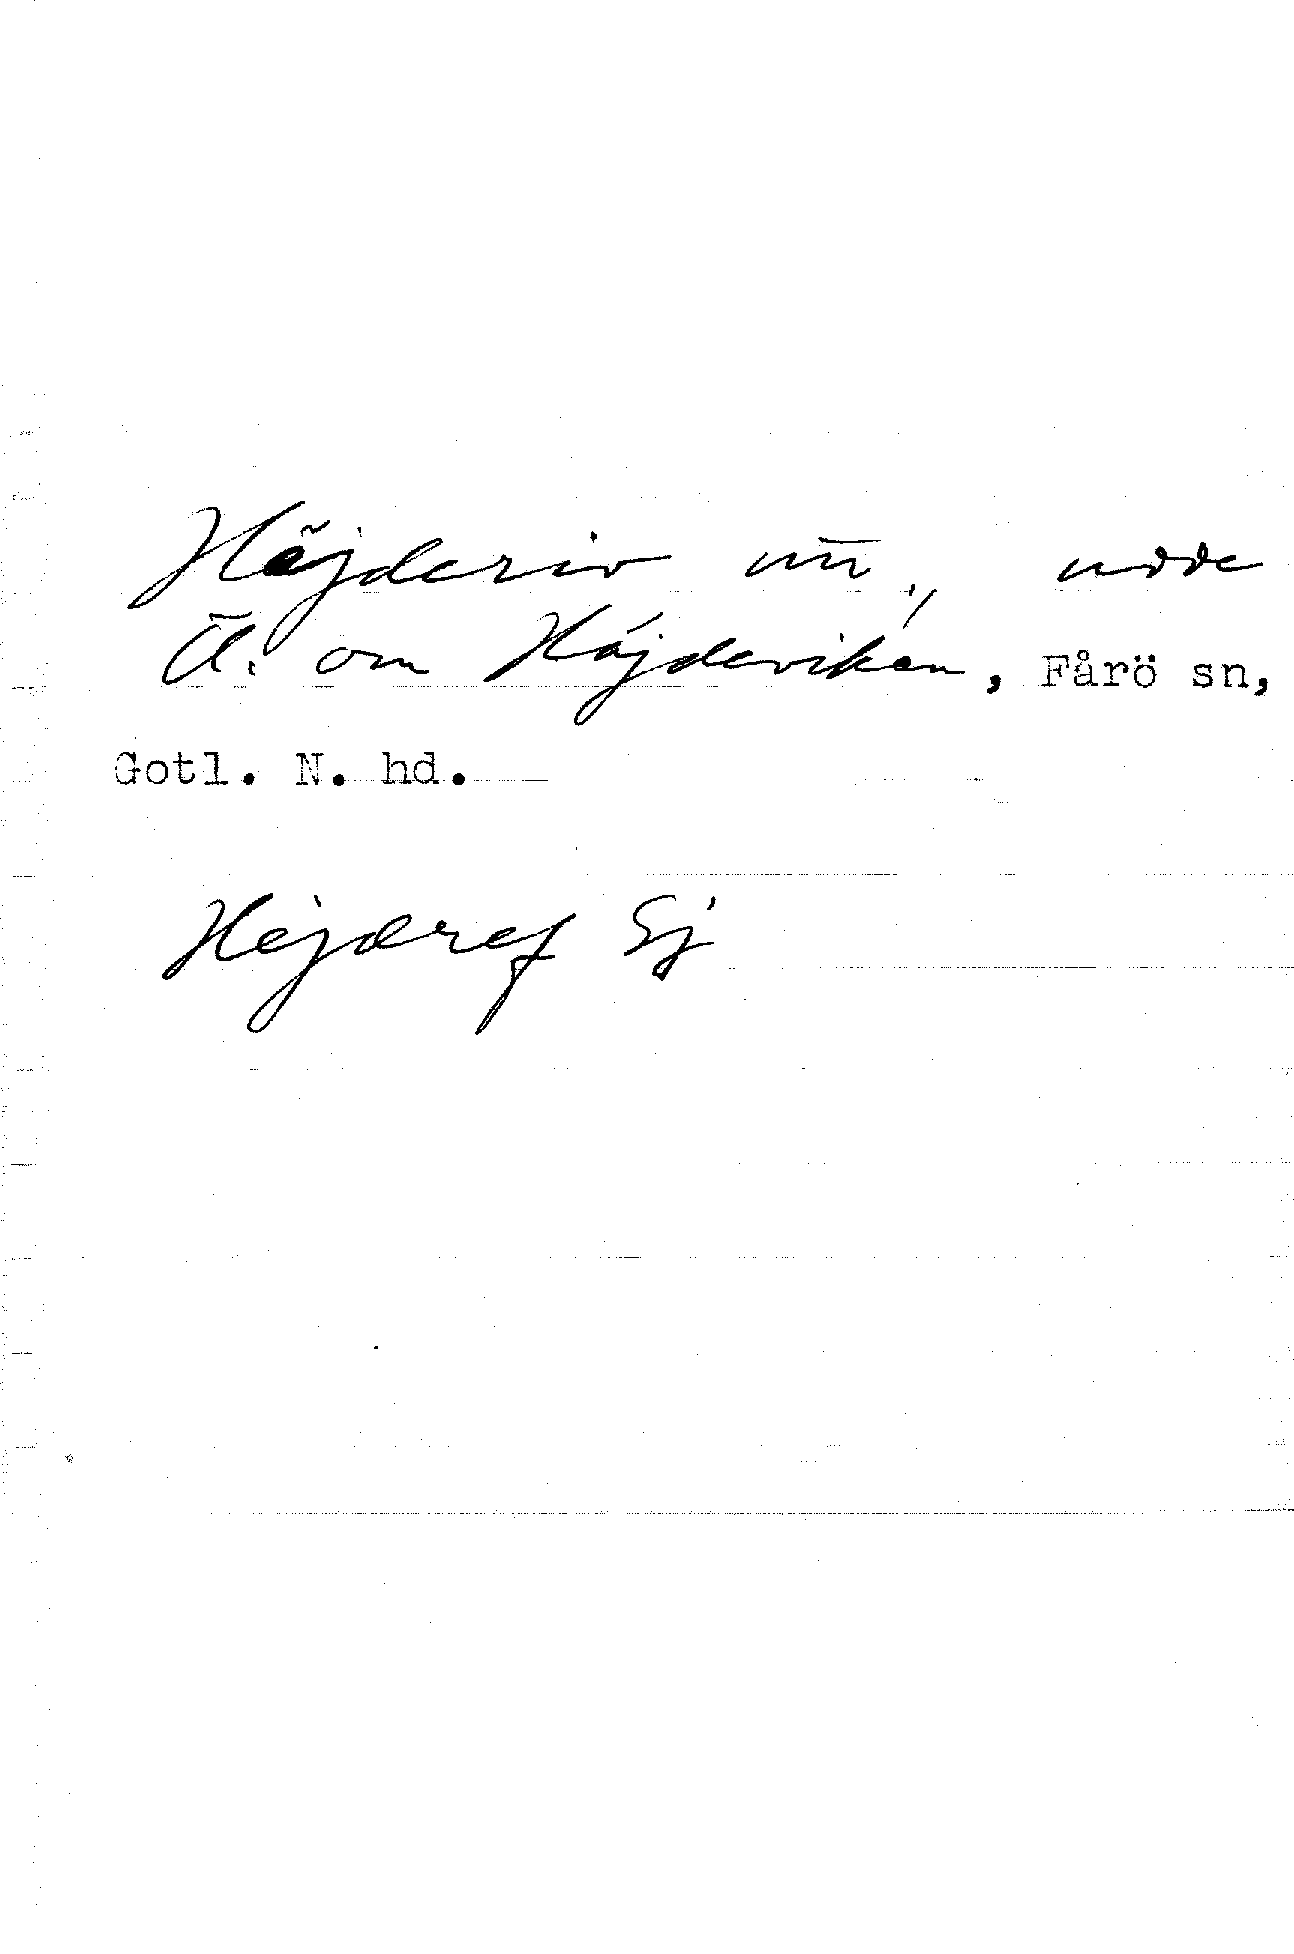 Hëjderiv m̄., udde
Ö. om Hëjdeviken, Fårö sn,
Gotl. N. hd.
Hejderef Sj